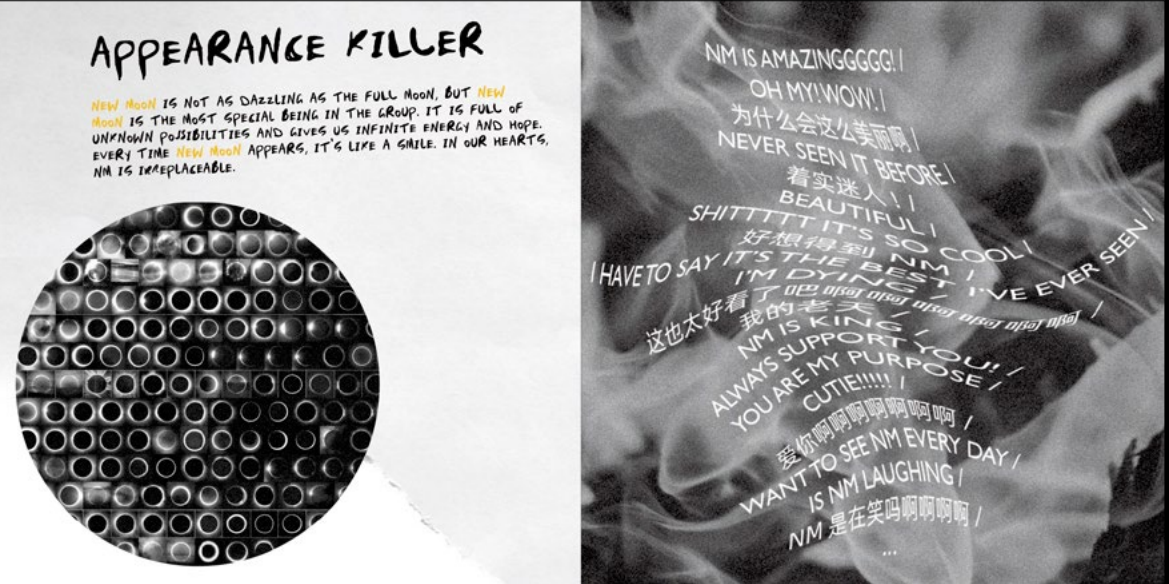 APPEARANCE KILLER
NEW MOON IS NOT AS DAZZLING AS THE FULL MOON, BUT NEW
MOON IS THE MOST SPECIAL BEING IN THE GROUP. IT IS FULL OF
UNKNOWN POSSIBILITIES AND GIVES US INFINITE ENERGY AND HOPE.
EVERY TIME NEW MOON APPEARS, IT'S LIKE A SMILE. IN OUR HEARTS,
NM IS IRREPLACEABLE.
NM IS AMAZINGGGGG! /
OH MY!WOW! /
为什么会这么美丽啊 /
NEVER SEEN IT BEFORE /
着实迷人！/
BEAUTIFUL /
SHITTTTT IT'S SO COOL /
好想得到 NM /
I HAVE TO SAY IT'S THE BEST I'VE EVER SEEN /
I'M DYING /
这也太好看了吧啊啊啊啊啊啊 /
我的老天 /
NM IS KING /
ALWAYS SUPPORT YOU! /
YOU ARE MY PURPOSE /
CUTIE!!!!! /
爱你啊啊啊啊啊啊啊 /
WANT TO SEE NM EVERY DAY /
IS NM LAUGHING /
NM 是在笑吗啊啊啊啊 /
...